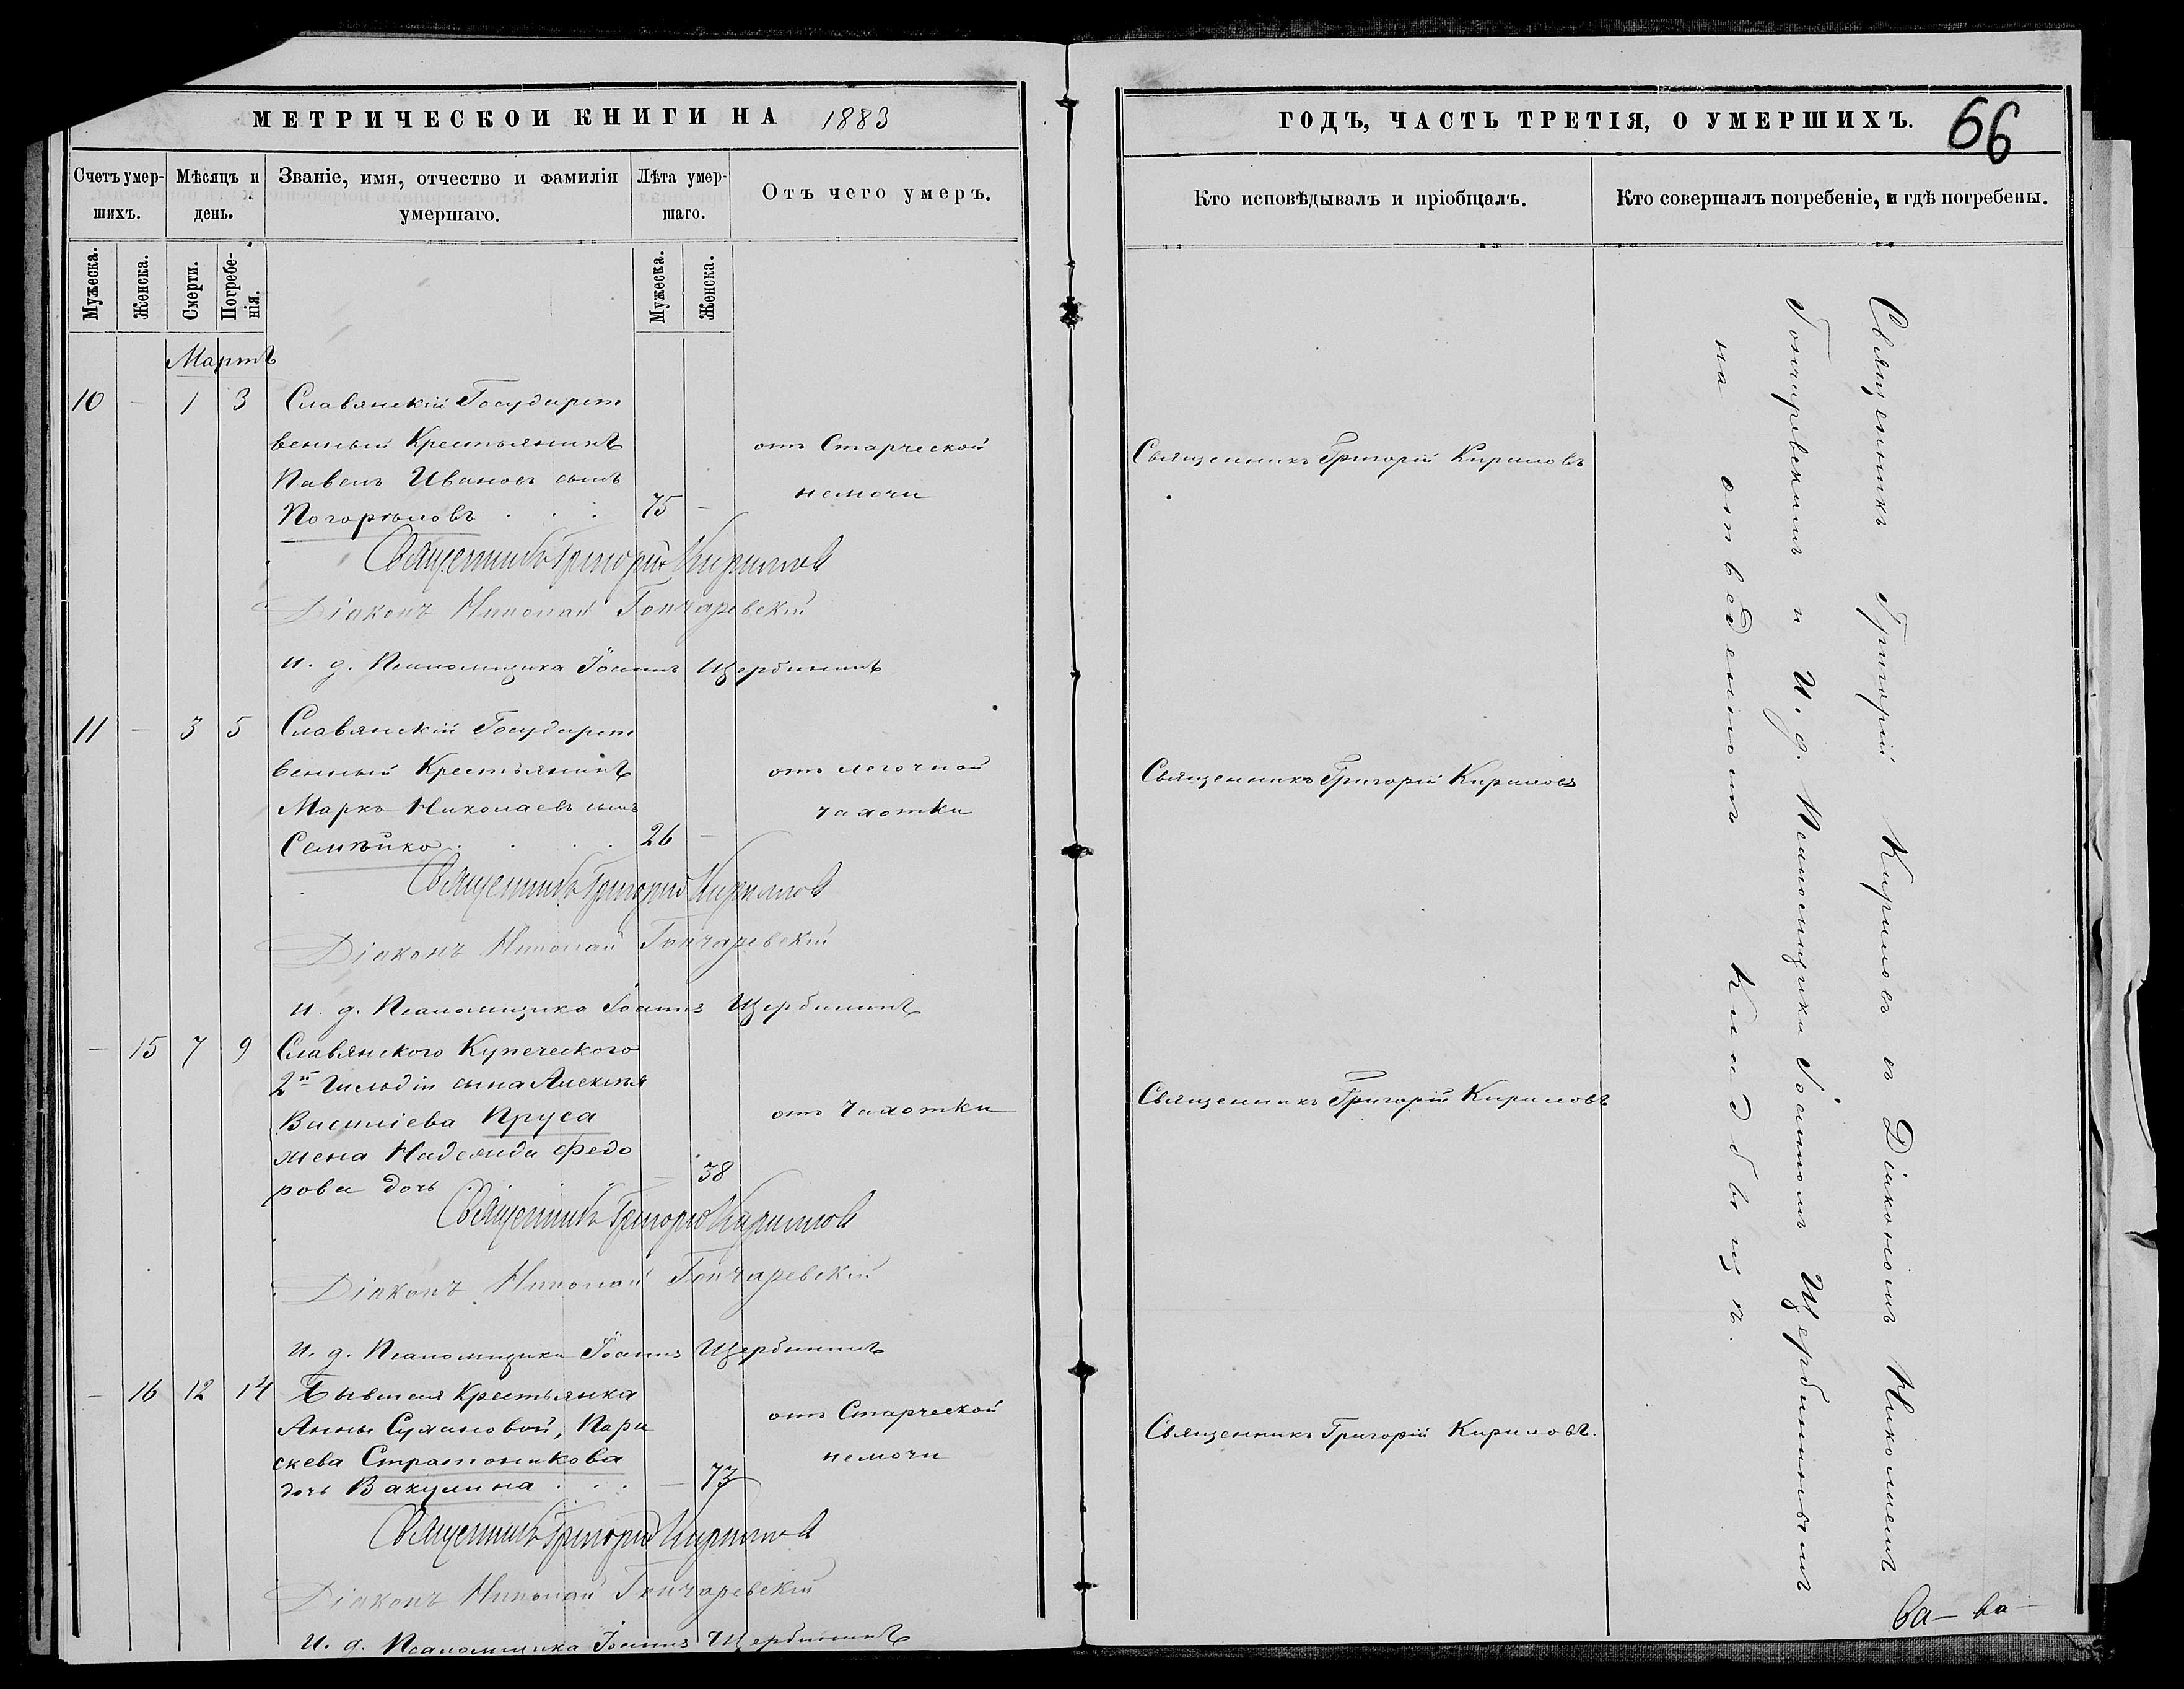 МЕТРИЧЕСКОЙ КНИГИ НА 1883
Счетъ умер-
шихъ.
Мѣсяцъ и
день.
Званіе, имя, отчество и фамилія
умершаго.
Лѣта умер-
шаго.
Отъ чего умеръ.
Мужеска.
Женска.
Смерти.
Погребе-
нія.
Мужеска.
Женска.
Мартъ
10 — 1 3 Славянскій Государст
венный Крестьянинъ
Павелъ Ивановъ сынъ
Погорѣловъ . . . 75 —
отъ Старческой
немочи
Священникъ Григорій Кириловъ
Діаконъ Николай Гончаревскій
И. д. Псаломщика Іоаннъ Щербининъ
11 — 3 5 Славянскій Государст
венный Крестьянинъ
Марко Николаевъ сынъ
Семѣйко . . . 26 —
отъ легочной
чахотки
Священникъ Григорій Кириловъ
Діаконъ Николай Гончаревскій
И. д. Псаломщика Іоаннъ Щербининъ
— 15 7 9 Славянского Купеческого
2й Гильдіи сына Алексѣя
Василіева Пруса
жена Надежда Федо
рова дочь — 38
отъ Чахотки
Священникъ Григорій Кириловъ
Діаконъ Николай Гончаревскій
И. д. Псаломщика Іоаннъ Щербининъ
— 16 12 14 Бывшая Крестьянка
Анны Сухановой, Пара
скева Стратоникова
дочь Вакулина . . . — 73
отъ Старческой
немочи
Священникъ Григорій Кириловъ
Діаконъ Николай Гончаревскій
И. д. Псаломщика Іоаннъ Щербининъ
ГОДЪ, ЧАСТЬ ТРЕТІЯ, О УМЕРШИХЪ.
66
Кто исповѣдывалъ и пріобщалъ.
Кто совершалъ погребеніе, и гдѣ погребены.
Священникъ Григорій Кириловъ
Священникъ Григорій Кириловъ
Священникъ Григорій Кириловъ
Священникъ Григорій Кириловъ.
Священникъ Григорій Кириловъ съ Діакономъ Николаемъ
Гончаревскимъ и И. д. Псаломщика Іоанномъ Щербининымъ
на отведенномъ Кладбищѣ.
ва — ва —